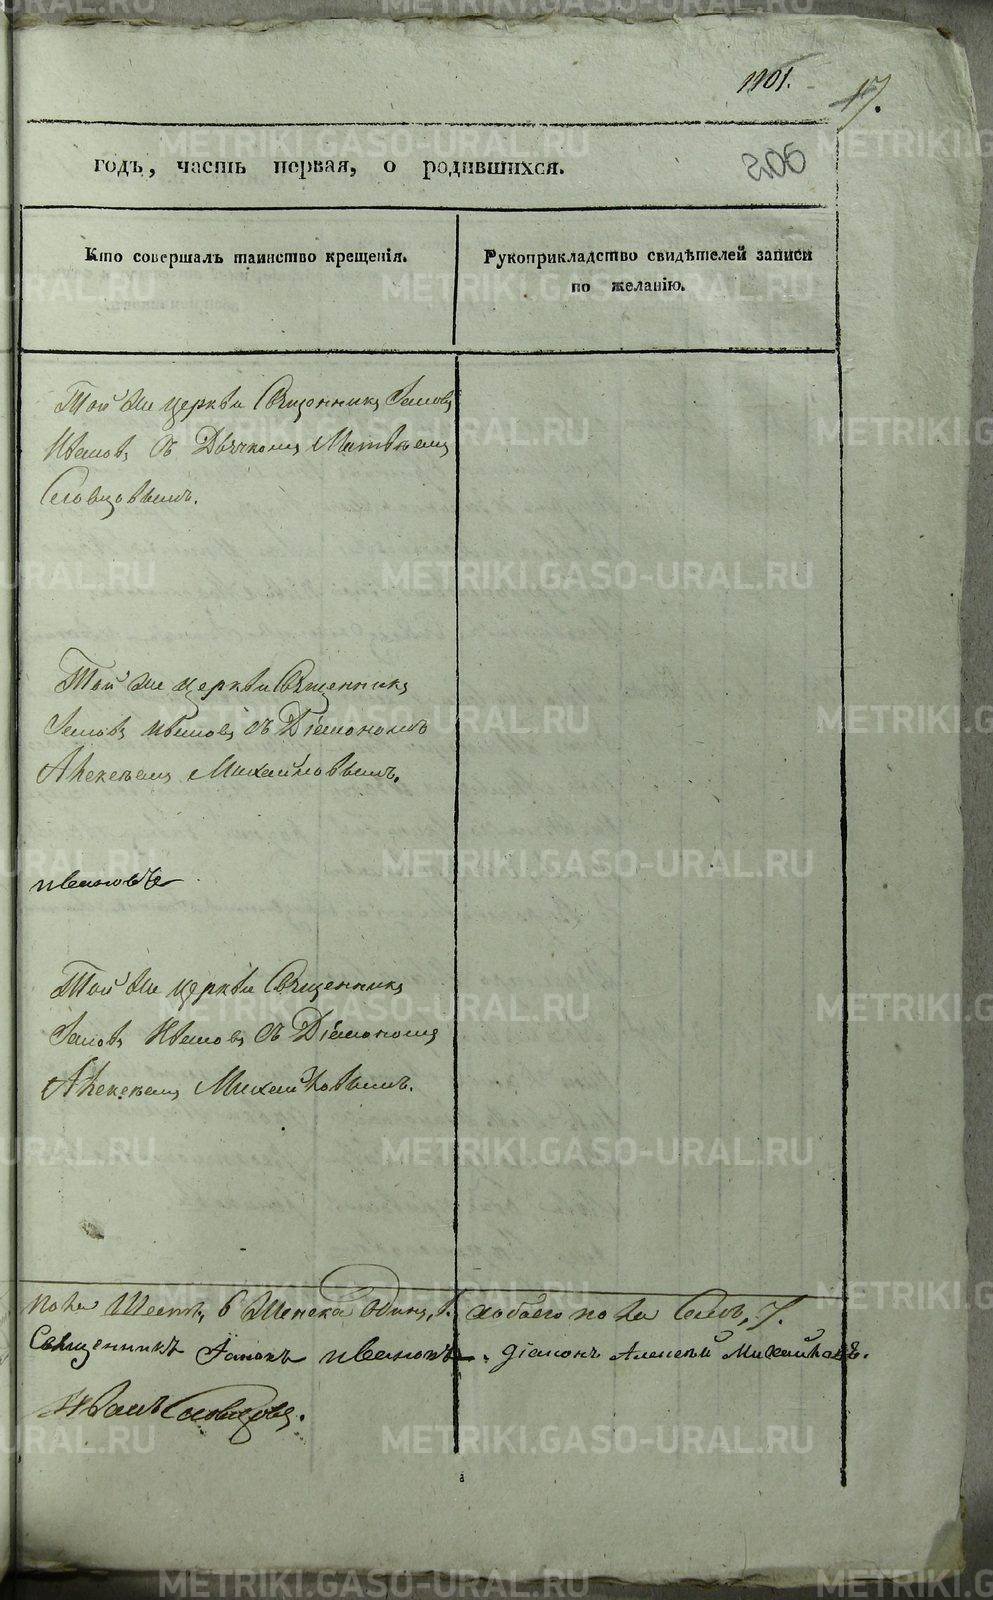 1101.
17.
205
годъ, часть первая, о родившихся.
Кто совершалъ таинство крещенія.
Рукоприкладство свидѣтелей записи
по желанію.
Той же церкви Священникъ Іаковъ
Ивановъ съ Дьячкомъ Матвѣемъ
Словцовымъ.
Той же церкви Священникъ
Іаковъ Ивановъ съ Діакономъ
Алексѣемъ Михайловымъ.
ивановъ
Той же церкви Священникъ
Іаковъ Ивановъ съ Діакономъ
Алексѣемъ Михайловымъ.
пола Шесть, 6 Женска Одинъ, 1. обоего пола Семь, 7.
Священникъ Іаковъ ивановъ. діаконъ Алексѣй Михайловъ.
Словцовъ.
METRIKI.GASO-URAL.RU